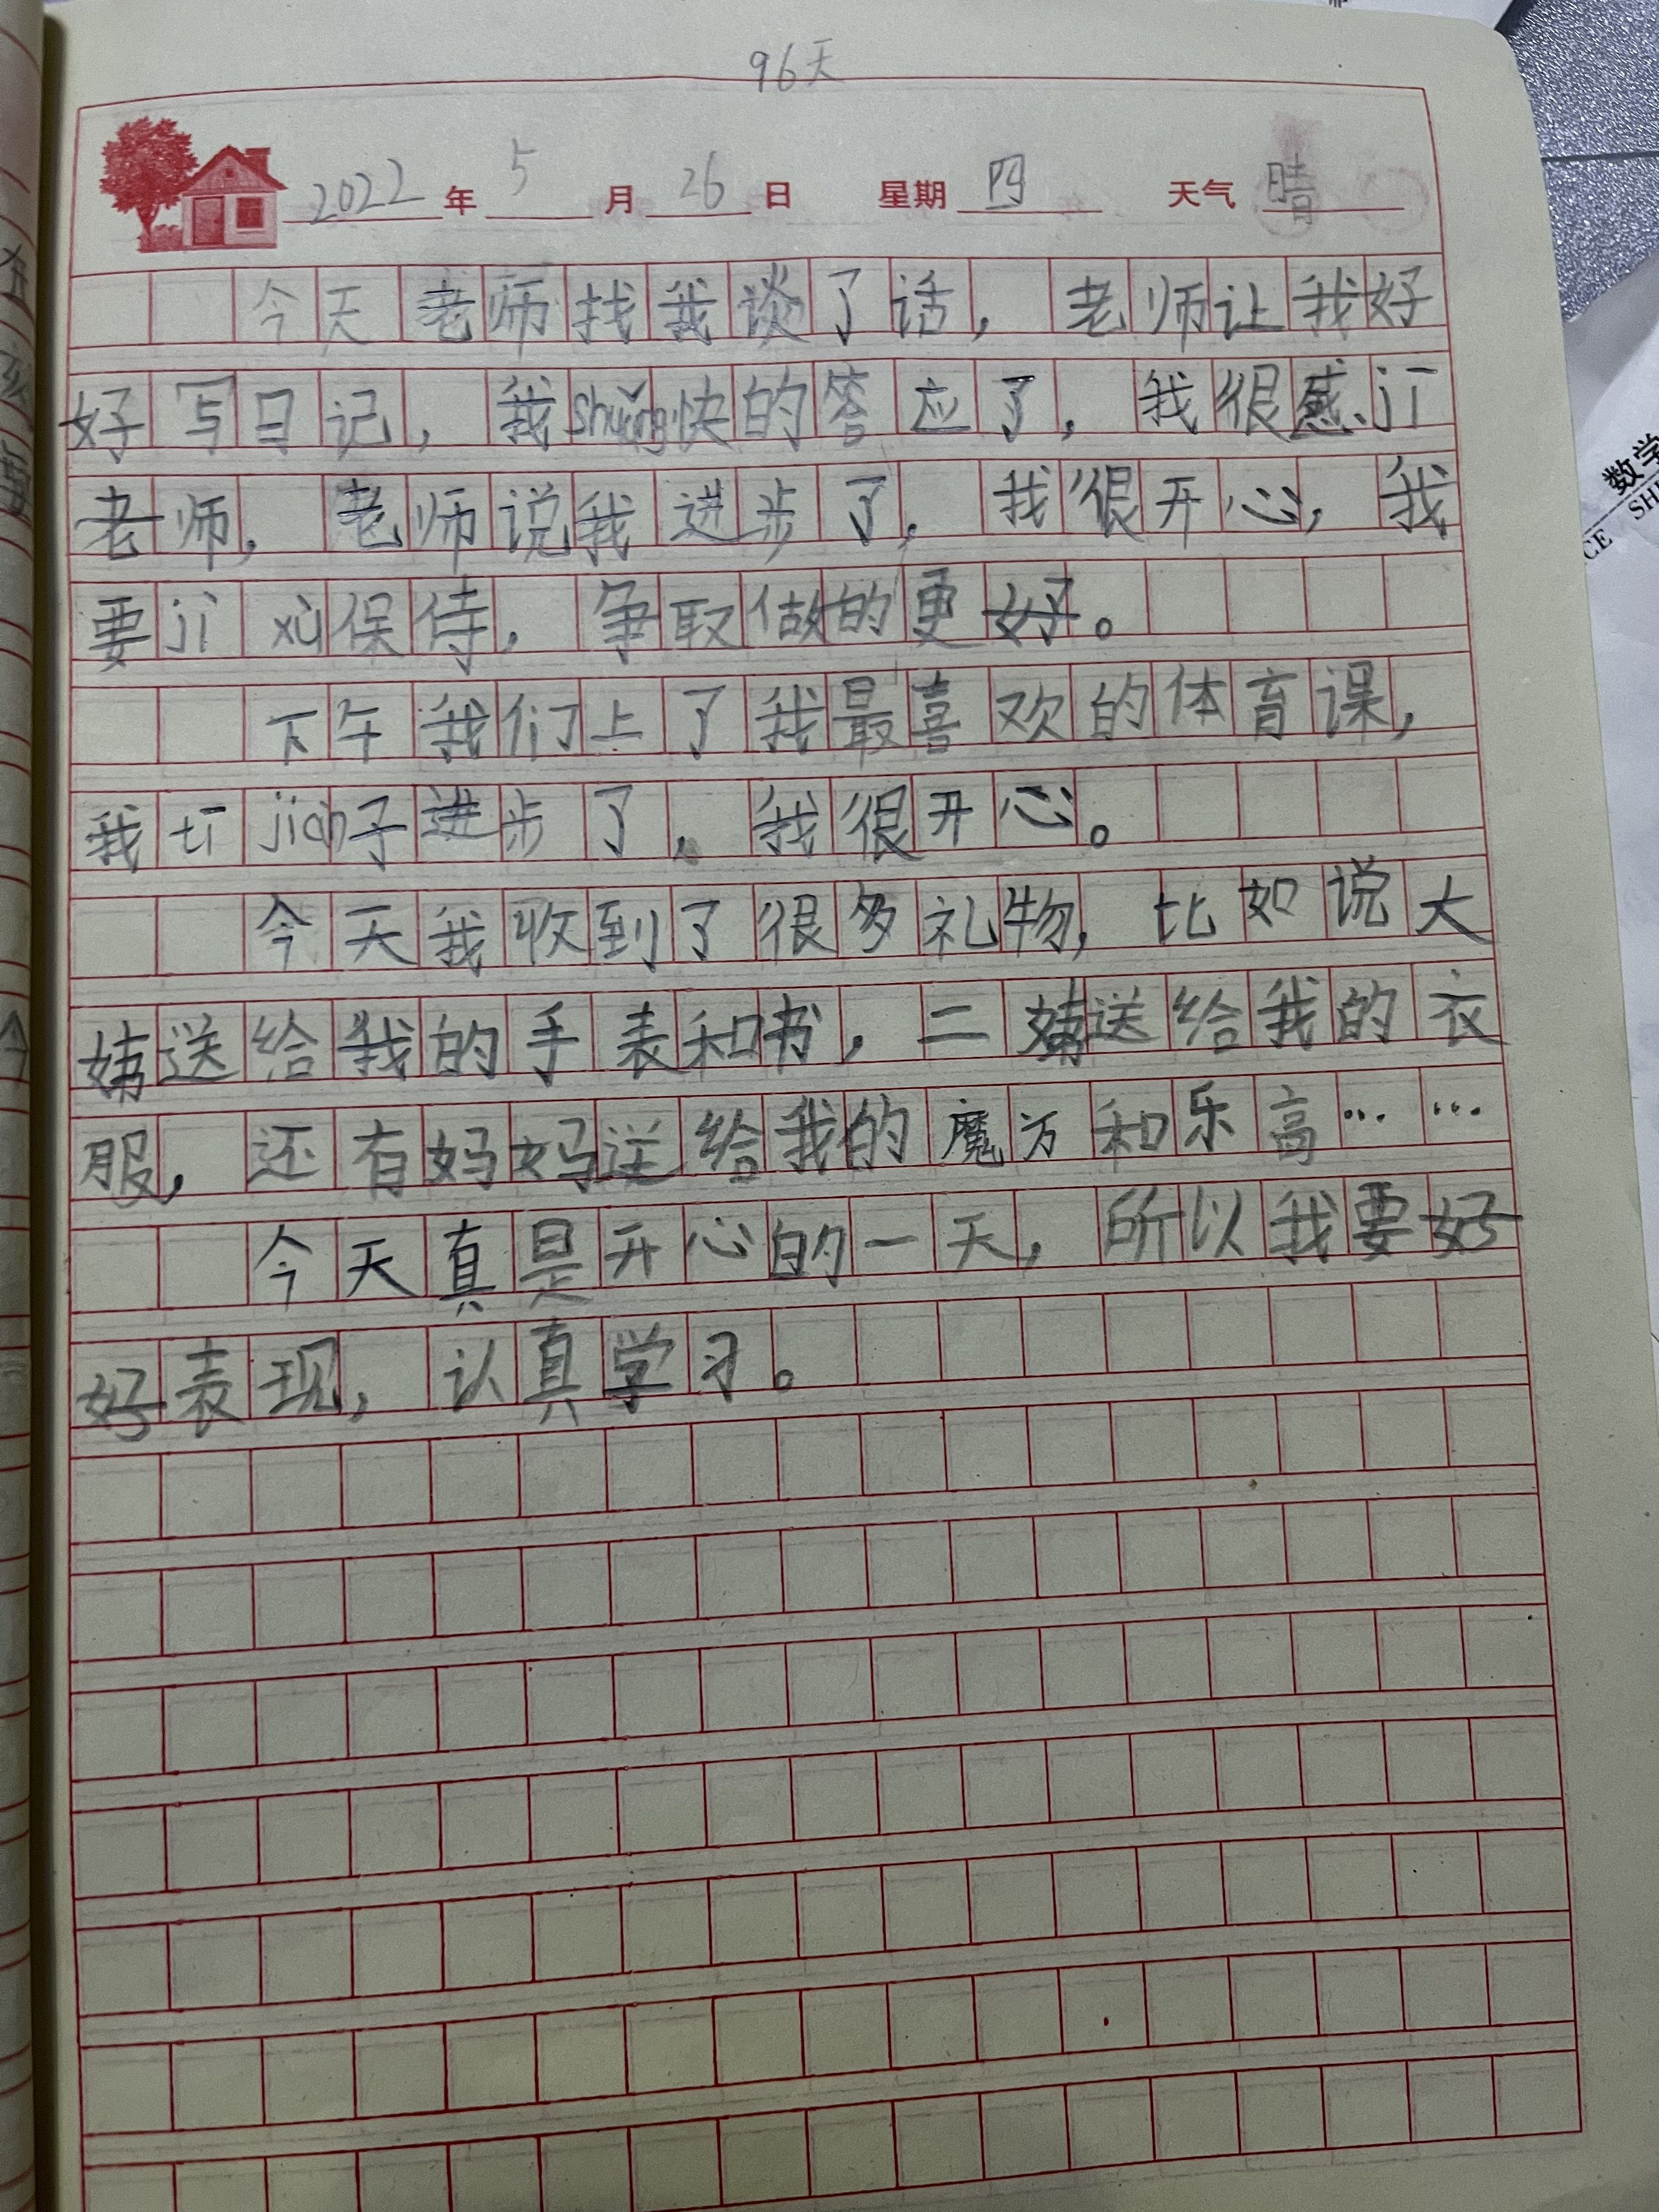 96天
2022年5月26日 星期四 天气晴
今天老师找我谈了话，老师让我好
好写日记，我shuǎng快的答应了，我很感jī
老师，老师说我进步了，我很开心，我
要jì xù保侍，争取做的更好。
下午我们上了我最喜欢的体育课，
我tī jiàn子进步了，我很开心。
今天我收到了很多礼物，比如说大
姨送给我的手表和书，二姨送给我的衣
服，还有妈妈送给我的魔方和乐高……
今天真是开心的一天，所以我要好
好表现，认真学习。
数学